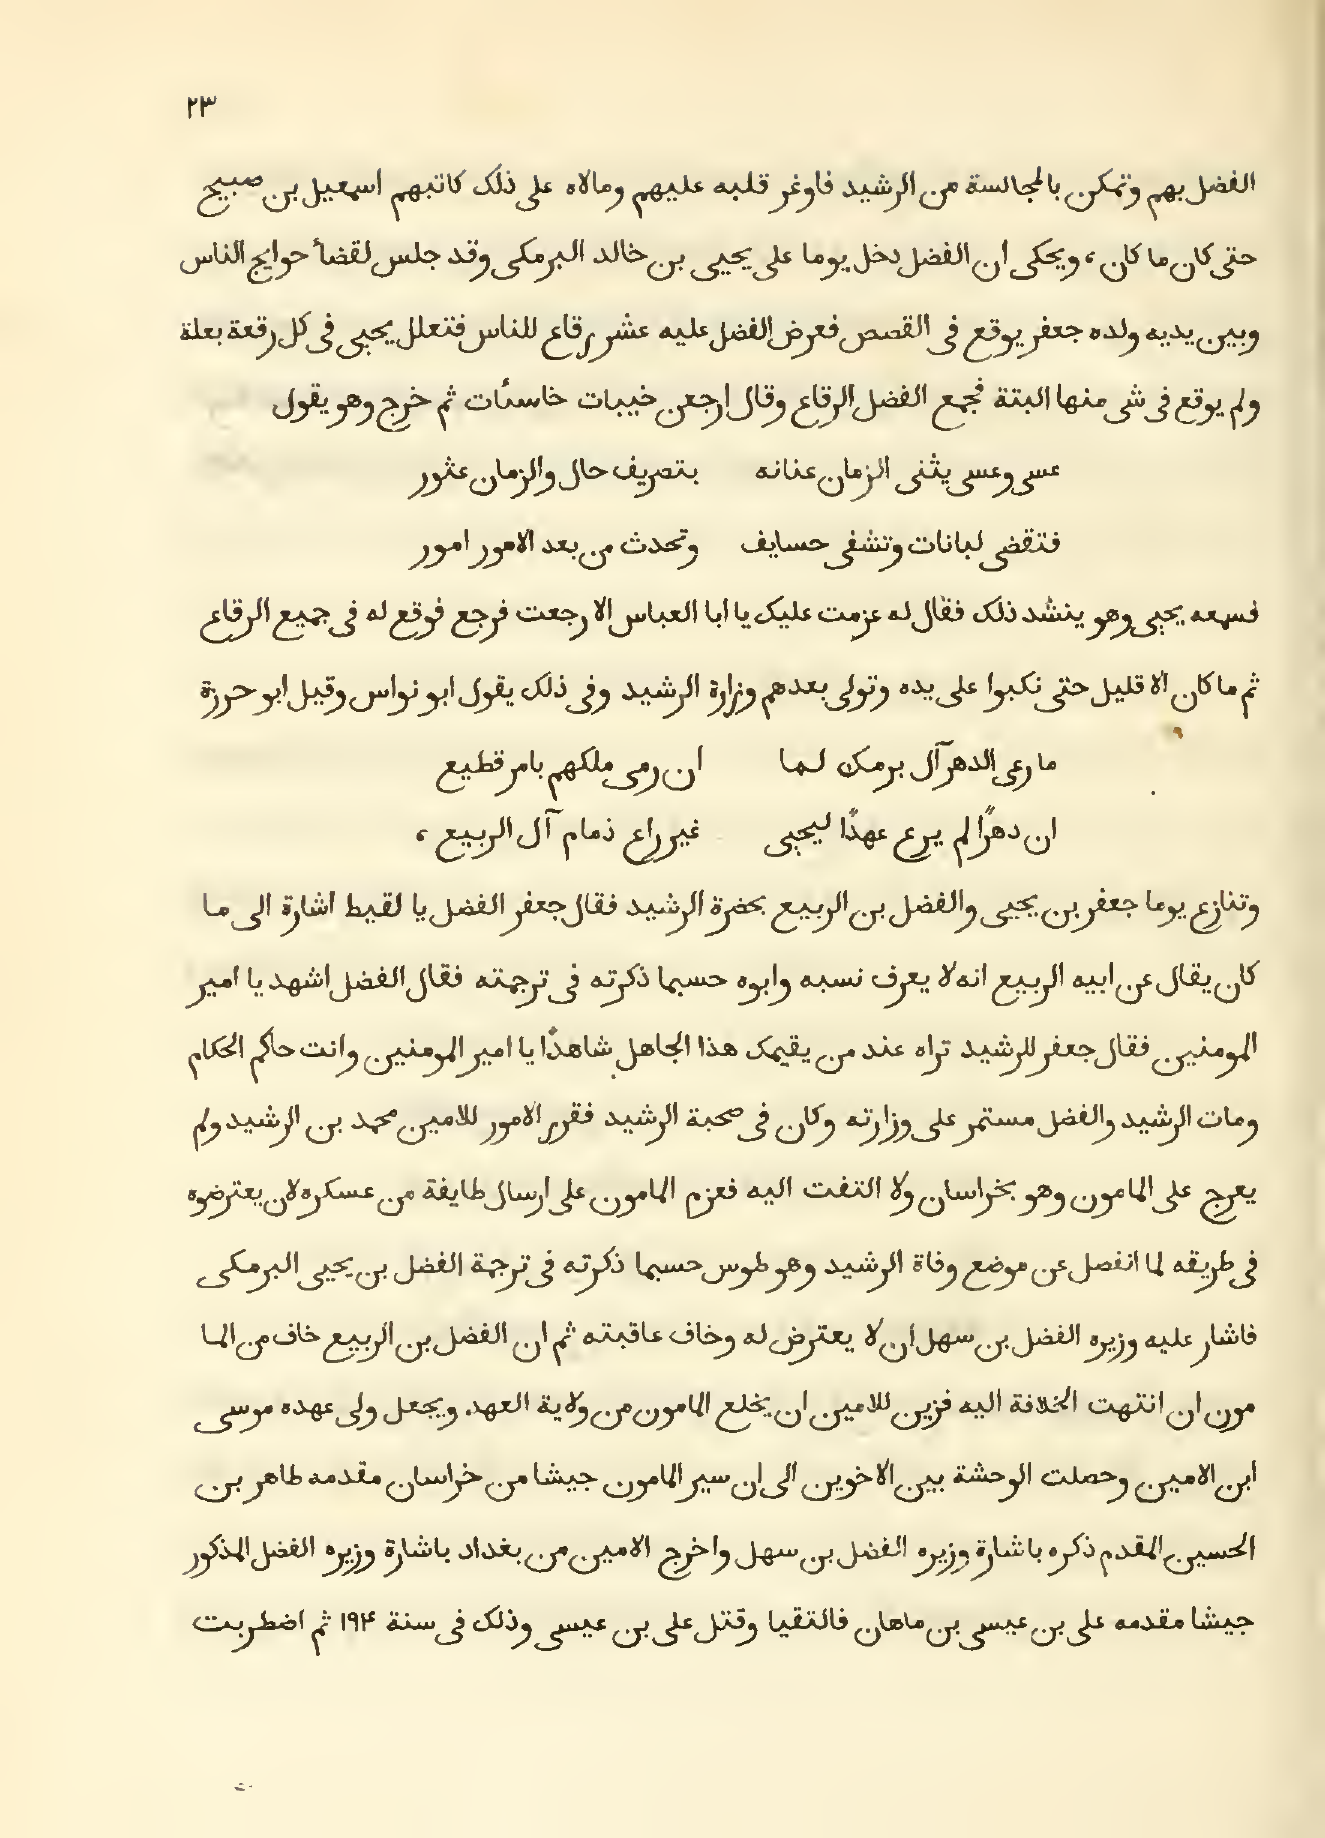 ٢٣
الفضل بهم وتمكن بالمجالسة من الرشيد فاوغر قلبه عليهم ومالاه على ذلك كاتبهم اسمعيل بن صبيح
حتى كان ما كان ، ويحكى ان الفضل دخل يوما على يحيى بن خالد البرمكى وقد جلس لقضأ حوايج الناس
وبين يديه ولده جعفر يوقع فى القصص فعرض الفضل عليه عشر رقاع للناس فتعلل يحيى فى كل رقعة بعلة
ولم يوقع فى شى منها البتة فجمع الفضل الرقاع وقال ارجعن خيبات خاسئات ثم خرج وهو يقول
عسى وعسى يثنى الزمان عنانه بتصريف حال والزمان عثور
فتقضى لبانات وتشفى حسايف وتحدث من بعد الامور امور
فسمعه يحيى وهو ينشد ذلك فقال له عزمت عليك يا ابا العباس الا رجعت فرجع فوقع له فى جميع الرقاع
ثم ما كان الا قليل حتى نكبوا على يده وتولى بعدهم وزارة الرشيد وفى ذلك يقول ابو نواس وقيل ابو حرزة
ما رعى الدهر آل برمك لما ان رمى ملكهم بامر قطيع
ان دهرًا لم يرع عهدًا ليحيى غير راع ذمام آل الربيع ،
وتنازع يوما جعفر بن يحيى والفضل بن الربيع بحضرة الرشيد فقال جعفر الفضل يا لقيط اشارة الى ما
كان يقال عن ابيه الربيع انه لا يعرف نسبه وابوه حسبما ذكرته فى ترجمته فقال الفضل اشهد يا امير
المومنين فقال جعفر للرشيد تراه عند من يقيمك هذا الجاهل شاهدًا يا امير المومنين وانت حاكم الحكام
ومات الرشيد والفضل مستمر على وزارته وكان فى صحبة الرشيد فقرر الامور للامين محمد بن الرشيد ولم
يعرج على المامون وهو بخراسان ولا التفت اليه فعزم المامون على ارسال طايفة من عسكره لان يعترضوه
فى طريقه لما انفصل عن موضع وفاة الرشيد وهو طوس حسبما ذكرته فى ترجمة الفضل بن يحيى البرمكى
فاشار عليه وزيره الفضل بن سهل ان لا يعترض له وخاف عاقبته ثم ان الفضل بن الربيع خاف من الما
مون ان انتهت الخلافة اليه فزين للامين ان يخلع المامون من ولاية العهد ويجعل ولى عهده موسى
ابن الامين وحصلت الوحشة بين الاخوين الى ان سير المامون جيشا من خراسان مقدمه طاهر بن
الحسين المقدم ذكره باشارة وزيره الفضل بن سهل واخرج الامين من بغداد باشارة وزيره الفضل المذكور
جيشا مقدمه على بن عيسى بن ماهان فالتقيا وقتل على بن عيسى وذلك فى سنة ١٩۴ ثم اضطربت